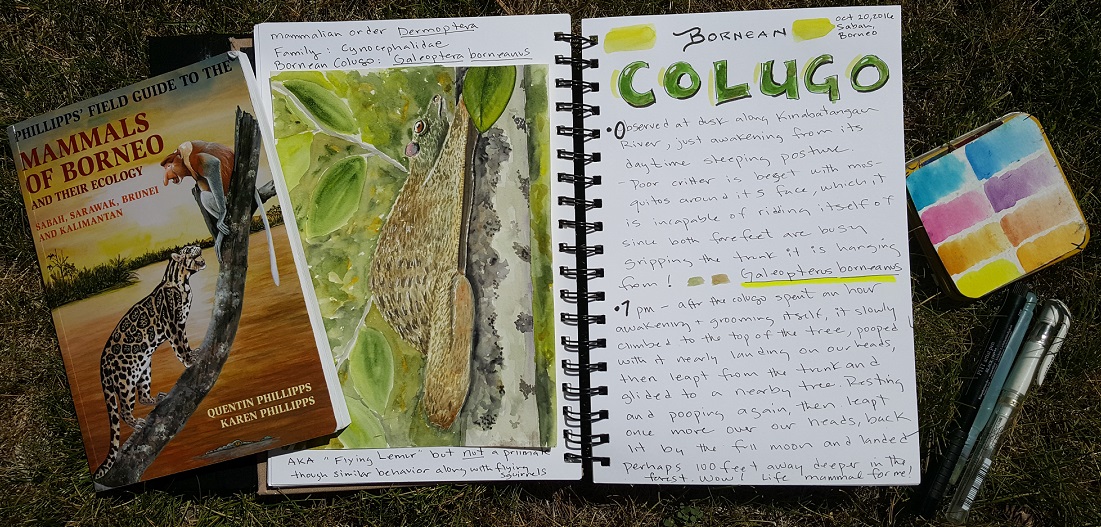 PHILLIPPS' FIELD GUIDE TO THE
MAMMALS
OF BORNEO
AND THEIR ECOLOGY
SABAH, SARAWAK, BRUNEI
AND KALIMANTAN
QUENTIN PHILLIPPS
KAREN PHILLIPPS
mammalian order Dermoptera
Family: Cynocephalidae
Bornean Colugo: Galeoptera borneanus
AKA "Flying Lemur" but not a primate
though similar behavior along with flying
squirrels
Oct 20, 2016
Sabah,
Borneo
BORNEAN
COLUGO
• Observed at dusk along Kinabatangan
River, just awakening from its
daytime sleeping posture.
- Poor critter is beset with mos-
quitos around its face, which it
is incapable of ridding itself of
since both forefeet are busy
gripping the trunk it is hanging
from! Galeopterus borneanus
• 7 pm - after the colugo spent an hour
awakening + grooming itself, it slowly
climbed to the top of the tree, pooped
with it nearly landing on our heads,
then leapt from the trunk and
glided to a nearby tree. Resting
and pooping again, then leapt
one more over our heads, back
lit by the full moon and landed
perhaps 100 feet away deeper in the
forest. Wow! Life mammal for me!